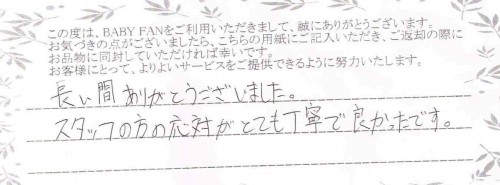 この度は、BABY FANをご利用いただきまして、誠にありがとうございます。
お気づきの点がございましたら、こちらの用紙にご記入いただき、ご返却の際に
お品物に同封していただければ幸いです。
お客様にとって、よりよいサービスをご提供できるように努力いたします。
長い間ありがとうございました。
スタッフの方の応対がとても丁寧で良かったです。